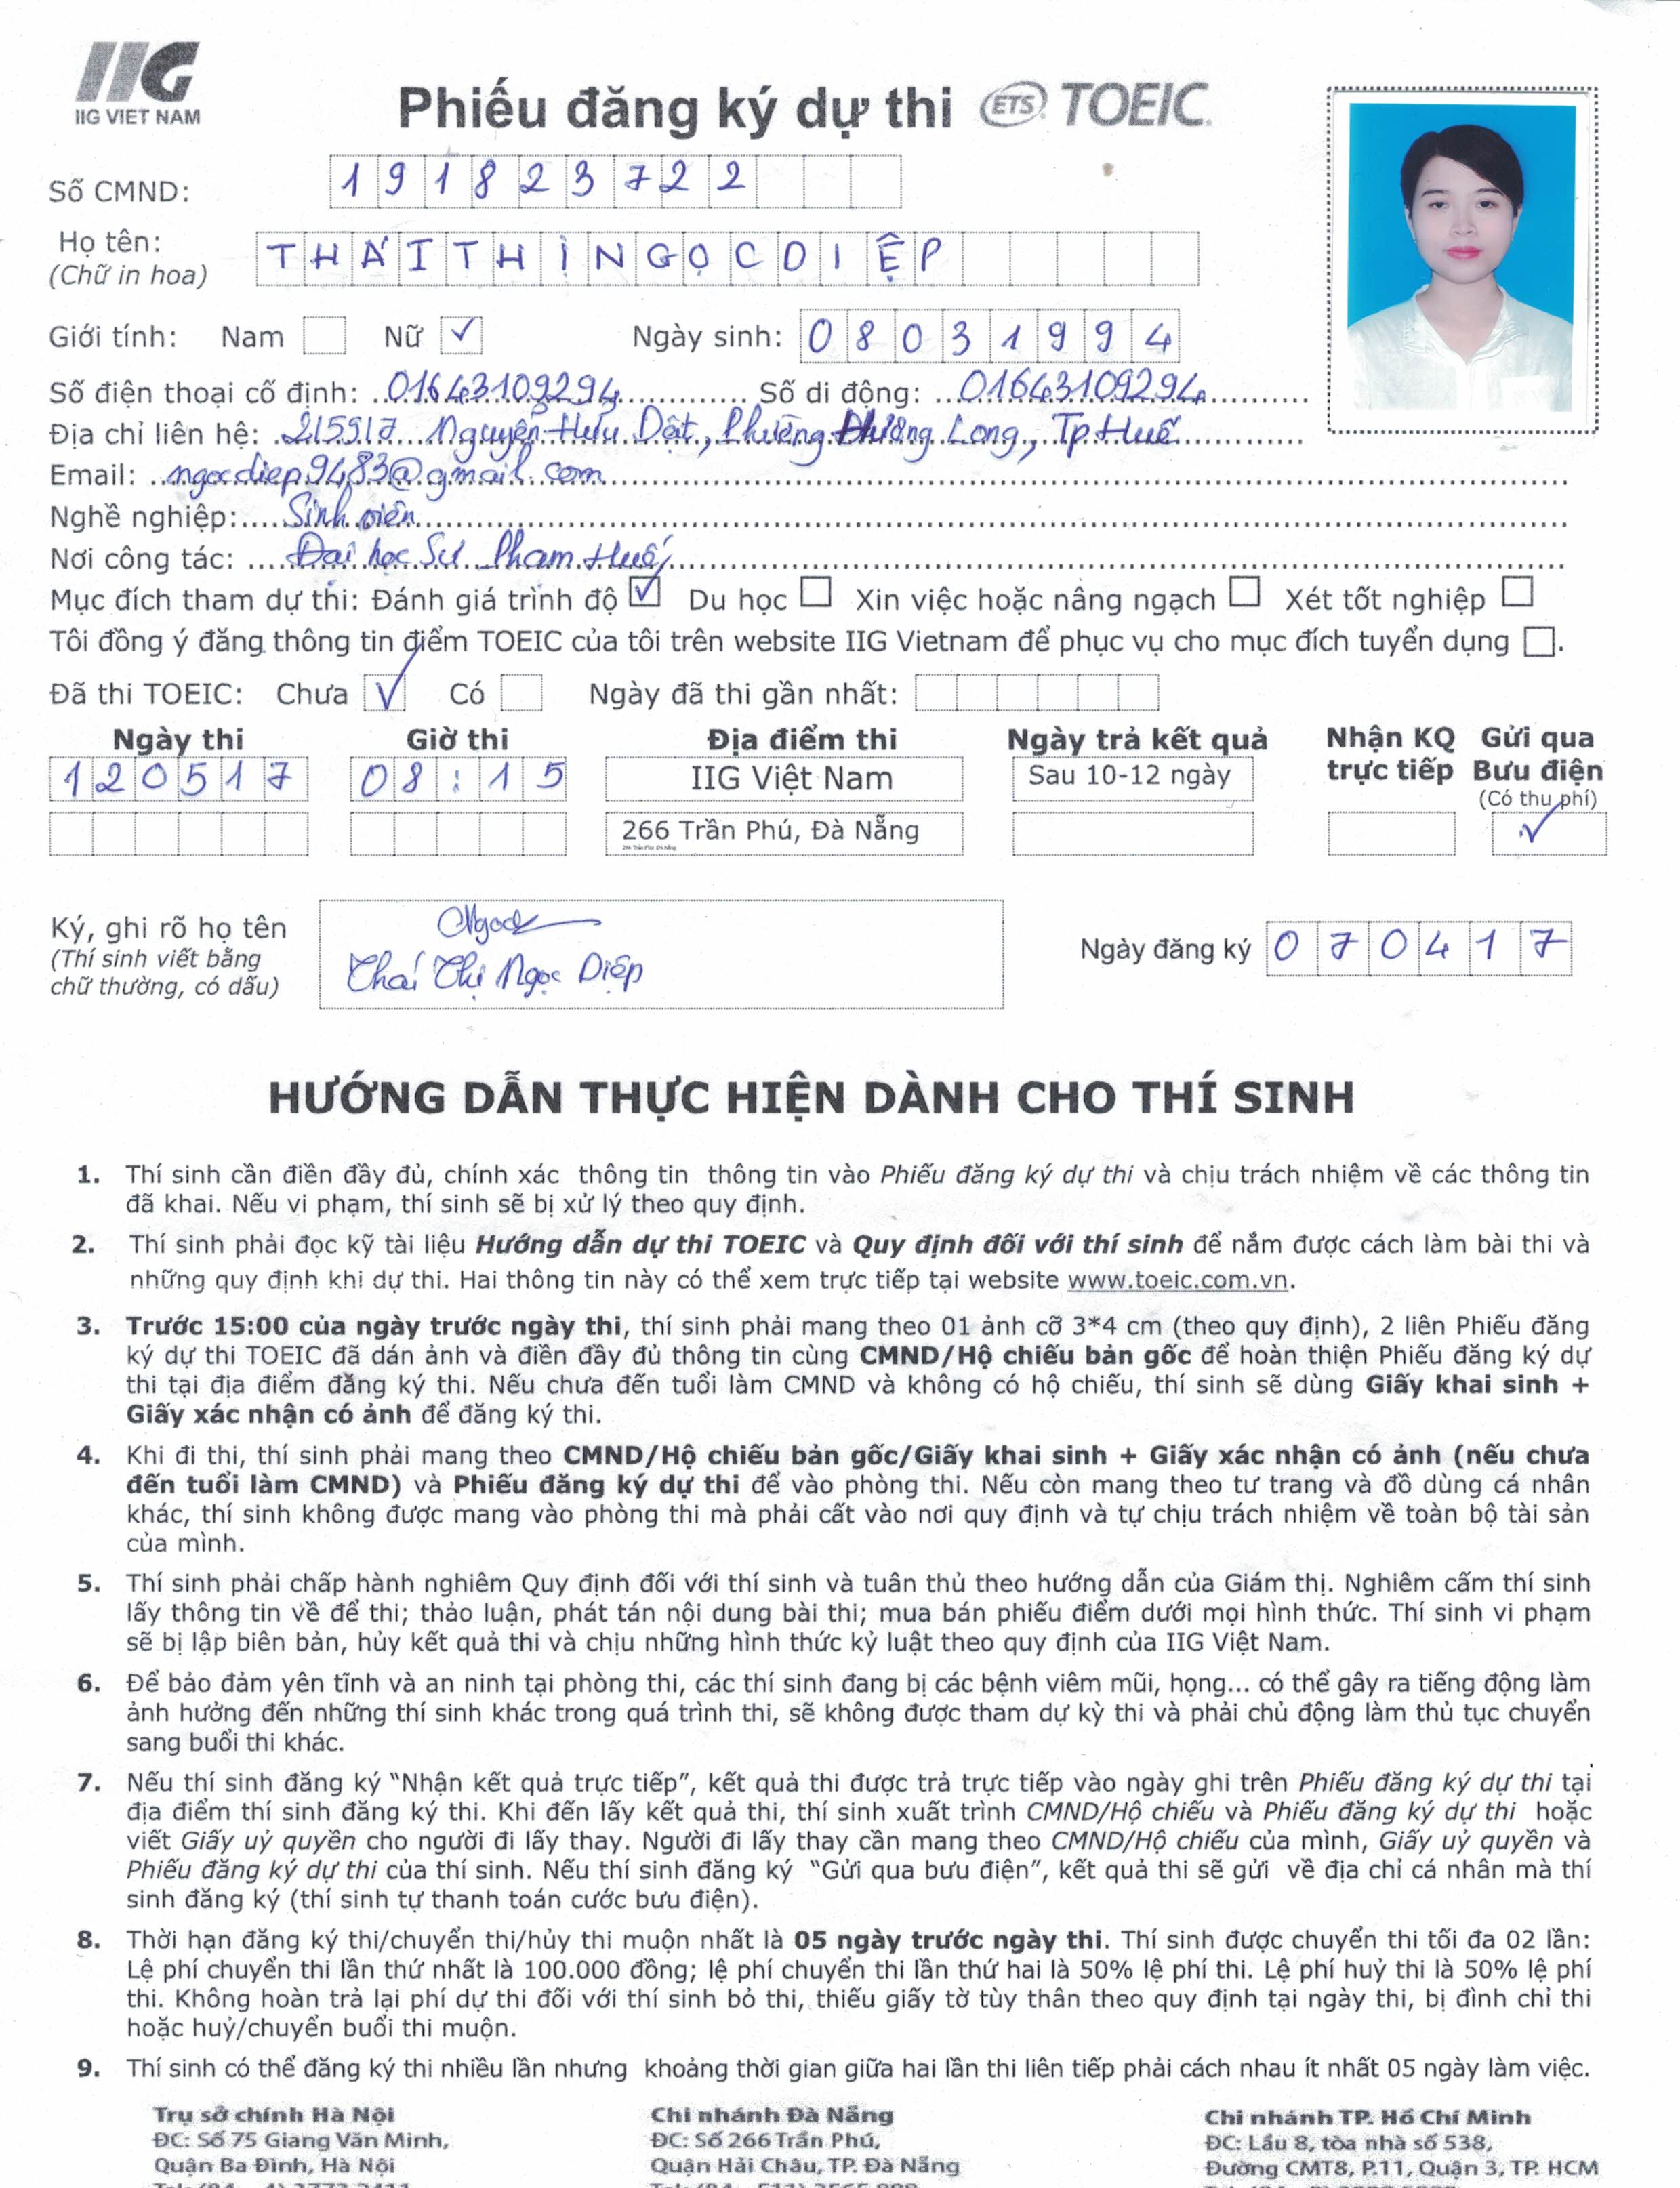 IIG
IIG VIET NAM
Phiếu đăng ký dự thi ETS TOEIC
Số CMND: 191823722
Họ tên: THÁI THỊ NGỌC DIỆP
(Chữ in hoa)
Giới tính: Nam Nữ ✓ Ngày sinh: 08031994
Số điện thoại cố định: 01643109294 Số di động: 01643109294
Địa chỉ liên hệ: Nguyễn Hữu Dật, Phường Hương Long, Tp Huế
Email: ngocdiep9483@gmail.com
Nghề nghiệp: Sinh viên
Nơi công tác: Đại học Sư Phạm Huế
Mục đích tham dự thi: Đánh giá trình độ ✓ Du học Xin việc hoặc nâng ngạch Xét tốt nghiệp
Tôi đồng ý đăng thông tin điểm TOEIC của tôi trên website IIG Vietnam để phục vụ cho mục đích tuyển dụng .
Đã thi TOEIC: Chưa ✓ Có Ngày đã thi gần nhất:
Ngày thi Giờ thi Địa điểm thi Ngày trả kết quả Nhận KQ trực tiếp Gửi qua Bưu điện
(Có thu phí)
120517 08:15 IIG Việt Nam Sau 10-12 ngày
266 Trần Phú, Đà Nẵng ✓
266 Trần Phú, Đà Nẵng
Ký, ghi rõ họ tên Ngọc
(Thí sinh viết bằng Thái Thị Ngọc Diệp
chữ thường, có dấu)
Ngày đăng ký 070417
HƯỚNG DẪN THỰC HIỆN DÀNH CHO THÍ SINH
1. Thí sinh cần điền đầy đủ, chính xác thông tin thông tin vào Phiếu đăng ký dự thi và chịu trách nhiệm về các thông tin
đã khai. Nếu vi phạm, thí sinh sẽ bị xử lý theo quy định.
2. Thí sinh phải đọc kỹ tài liệu Hướng dẫn dự thi TOEIC và Quy định đối với thí sinh để nắm được cách làm bài thi và
những quy định khi dự thi. Hai thông tin này có thể xem trực tiếp tại website www.toeic.com.vn.
3. Trước 15:00 của ngày trước ngày thi, thí sinh phải mang theo 01 ảnh cỡ 3*4 cm (theo quy định), 2 liên Phiếu đăng
ký dự thi TOEIC đã dán ảnh và điền đầy đủ thông tin cùng CMND/Hộ chiếu bản gốc để hoàn thiện Phiếu đăng ký dự
thi tại địa điểm đăng ký thi. Nếu chưa đến tuổi làm CMND và không có hộ chiếu, thí sinh sẽ dùng Giấy khai sinh +
Giấy xác nhận có ảnh để đăng ký thi.
4. Khi đi thi, thí sinh phải mang theo CMND/Hộ chiếu bản gốc/Giấy khai sinh + Giấy xác nhận có ảnh (nếu chưa
đến tuổi làm CMND) và Phiếu đăng ký dự thi để vào phòng thi. Nếu còn mang theo tư trang và đồ dùng cá nhân
khác, thí sinh không được mang vào phòng thi mà phải cất vào nơi quy định và tự chịu trách nhiệm về toàn bộ tài sản
của mình.
5. Thí sinh phải chấp hành nghiêm Quy định đối với thí sinh và tuân thủ theo hướng dẫn của Giám thị. Nghiêm cấm thí sinh
lấy thông tin về để thi; thảo luận, phát tán nội dung bài thi; mua bán phiếu điểm dưới mọi hình thức. Thí sinh vi phạm
sẽ bị lập biên bản, hủy kết quả thi và chịu những hình thức kỷ luật theo quy định của IIG Việt Nam.
6. Để bảo đảm yên tĩnh và an ninh tại phòng thi, các thí sinh đang bị các bệnh viêm mũi, họng... có thể gây ra tiếng động làm
ảnh hưởng đến những thí sinh khác trong quá trình thi, sẽ không được tham dự kỳ thi và phải chủ động làm thủ tục chuyển
sang buổi thi khác.
7. Nếu thí sinh đăng ký “Nhận kết quả trực tiếp”, kết quả thi được trả trực tiếp vào ngày ghi trên Phiếu đăng ký dự thi tại
địa điểm thí sinh đăng ký thi. Khi đến lấy kết quả thi, thí sinh xuất trình CMND/Hộ chiếu và Phiếu đăng ký dự thi hoặc
viết Giấy uỷ quyền cho người đi lấy thay. Người đi lấy thay cần mang theo CMND/Hộ chiếu của mình, Giấy uỷ quyền và
Phiếu đăng ký dự thi của thí sinh. Nếu thí sinh đăng ký “Gửi qua bưu điện”, kết quả thi sẽ gửi về địa chỉ cá nhân mà thí
sinh đăng ký (thí sinh tự thanh toán cước bưu điện).
8. Thời hạn đăng ký thi/chuyển thi/hủy thi muộn nhất là 05 ngày trước ngày thi. Thí sinh được chuyển thi tối đa 02 lần:
Lệ phí chuyển thi lần thứ nhất là 100.000 đồng; lệ phí chuyển thi lần thứ hai là 50% lệ phí thi. Lệ phí huỷ thi là 50% lệ phí
thi. Không hoàn trả lại phí dự thi đối với thí sinh bỏ thi, thiếu giấy tờ tùy thân theo quy định tại ngày thi, bị đình chỉ thi
hoặc huỷ/chuyển buổi thi muộn.
9. Thí sinh có thể đăng ký thi nhiều lần nhưng khoảng thời gian giữa hai lần thi liên tiếp phải cách nhau ít nhất 05 ngày làm việc.
Trụ sở chính Hà Nội Chi nhánh Đà Nẵng Chi nhánh TP. Hồ Chí Minh
ĐC: Số 75 Giang Văn Minh, ĐC: Số 266 Trần Phú, ĐC: Lầu 8, tòa nhà số 538,
Quận Ba Đình, Hà Nội Quận Hải Châu, TP. Đà Nẵng Đường CMT8, P.11, Quận 3, TP. HCM